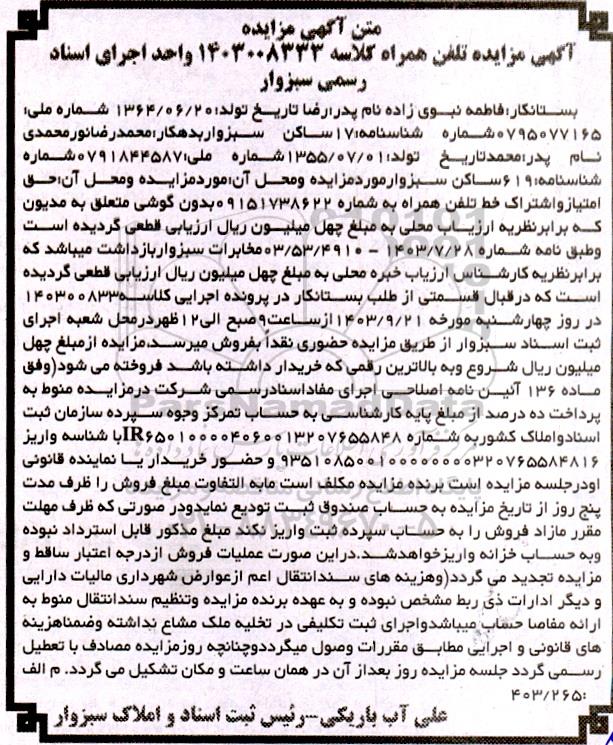 متن آگهی مزایده
آگهی مزایده تلفن همراه کلاسه ۱۴۰۳۰۰۸۳۳۳ واحد اجرای اسناد
رسمی سبزوار
بستانکار:فاطمه نبوی زاده نام پدر:رضا تاریخ تولد:۱۳۶۴/۰۶/۲۰ شماره ملی:
۰۷۹۵۰۷۷۱۶۵شماره شناسنامه:۱۷ساکن سبزواربدهکار:محمدرضانورمحمدی
نام پدر:محمدتاریخ تولد:۱۳۵۵/۰۷/۰۱شماره ملی:۰۷۹۱۸۴۴۵۸۷شماره
شناسنامه:۶۱۹ساکن سبزوارموردمزایده ومحل آن:موردمزایده ومحل آن:حق
امتیازواشتراک خط تلفن همراه به شماره ۰۹۱۵۱۷۳۸۶۲۲بدون گوشی متعلق به مدیون
که برابرنظریه ارزیاب محلی به مبلغ چهل میلیون ریال ارزیابی قطعی گردیده است
وطبق نامه شماره ۱۴۰۳/۷/۲۸ – ۰۳/۵۳/۴۹۱۰مخابرات سبزواربازداشت میباشد که
برابرنظریه کارشناس ارزیاب خبره محلی به مبلغ چهل میلیون ریال ارزیابی قطعی گردیده
است که درقبال قسمتی از طلب بستانکار در پرونده اجرایی کلاسه۱۴۰۳۰۰۸۳۳
در روز چهارشنبه مورخه ۱۴۰۳/۹/۲۱ ازساعت۹صبح الی۱۲ظهردرمحل شعبه اجرای
ثبت اسناد سبزوار از طریق مزایده حضوری نقداً بفروش میرسد،مزایده ازمبلغ چهل
میلیون ریال شروع وبه بالاترین رقمی که خریدار داشته باشد فروخته می شود(وفق
ماده ۱۳۶ آئین نامه اصلاحی اجرای مفاداسنادرسمی شرکت درمزایده منوط به
پرداخت ده درصد از مبلغ پایه کارشناسی به حساب تمرکز وجوه سپرده سازمان ثبت
اسنادواملاک کشوربه شماره IR۶۵۰۱۰۰۰۰۴۰۶۰۰۱۳۲۰۷۶۵۵۸۴۸با شناسه واریز
۹۳۵۱۰۸۵۰۰۱۰۰۰۰۰۰۰۰۳۲۰۷۶۵۵۸۴۸۱۶ و حضور خریدار یا نماینده قانونی
اودرجلسه مزایده است برنده مزایده مکلف است مابه التفاوت مبلغ فروش را ظرف مدت
پنج روز از تاریخ مزایده به حساب صندوق ثبت تودیع نمایددر صورتی که ظرف مهلت
مقرر مازاد فروش را به حساب سپرده ثبت واریز نکند مبلغ مذکور قابل استرداد نبوده
وبه حساب خزانه واریزخواهدشد.دراین صورت عملیات فروش ازدرجه اعتبار ساقط و
مزایده تجدید می گردد(وهزینه های سندانتقال اعم ازعوارض شهرداری مالیات دارایی
و دیگر ادارات ذی ربط مشخص نبوده و به عهده برنده مزایده وتنظیم سندانتقال منوط به
ارائه مفاصا حساب میباشدواجرای ثبت تکلیفی در تخلیه ملک مشاع نداشته وضمناهزینه
های قانونی و اجرایی مطابق مقررات وصول میگرددوچنانچه روزمزایده مصادف با تعطیل
رسمی گردد جلسه مزایده روز بعداز آن در همان ساعت و مکان تشکیل می گردد. م الف
:۴۰۳/۲۶۵
علی آب باریکی–رئیس ثبت اسناد و املاک سبزوار
ParsNamadData